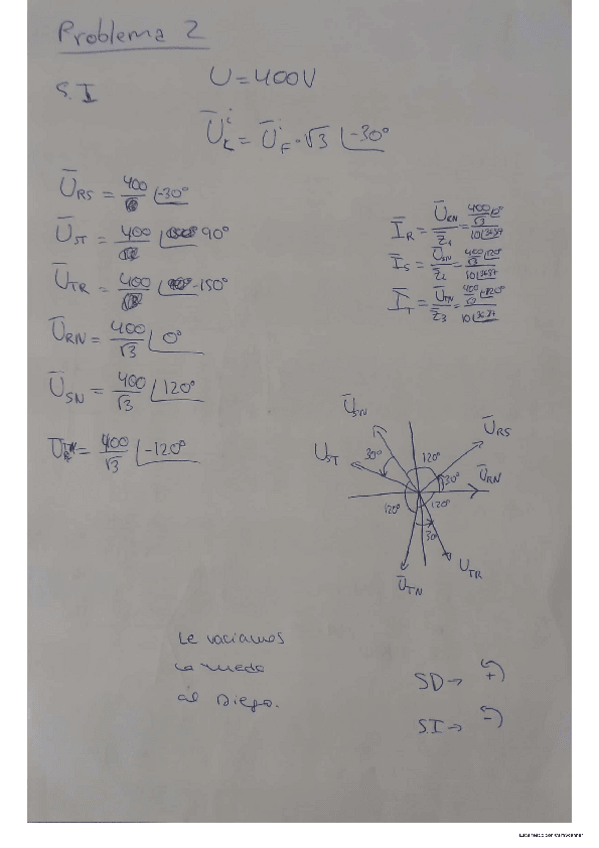 Problema 2
S.I
U = 400V
Ū_L^i = Ū_F^i · √3 ∠-30°
Ū_RS = 400 ∠-30°
Ū_ST = 400 ∠90°
Ū_TR = 400 ∠-150°
Ū_RN = 400/√3 ∠0°
Ū_SN = 400/√3 ∠120°
Ū_TN = 400/√3 ∠-120°
Ī_R = Ū_RN/Z̄_1 = (400/√3 ∠0°)/(10 ∠36'87)
Ī_S = Ū_SN/Z̄_2 = (400/√3 ∠120°)/(10 ∠36'87)
Ī_T = Ū_TN/Z̄_3 = (400/√3 ∠-120°)/(10 ∠36'87)
Ū_SN
Ū_RS
U_ST
30°
120°
30°
Ū_RN
120°
120°
30°
U_TR
Ū_TN
Le vaciamos
la rueda
al Diego.
SD → +
S.I → -